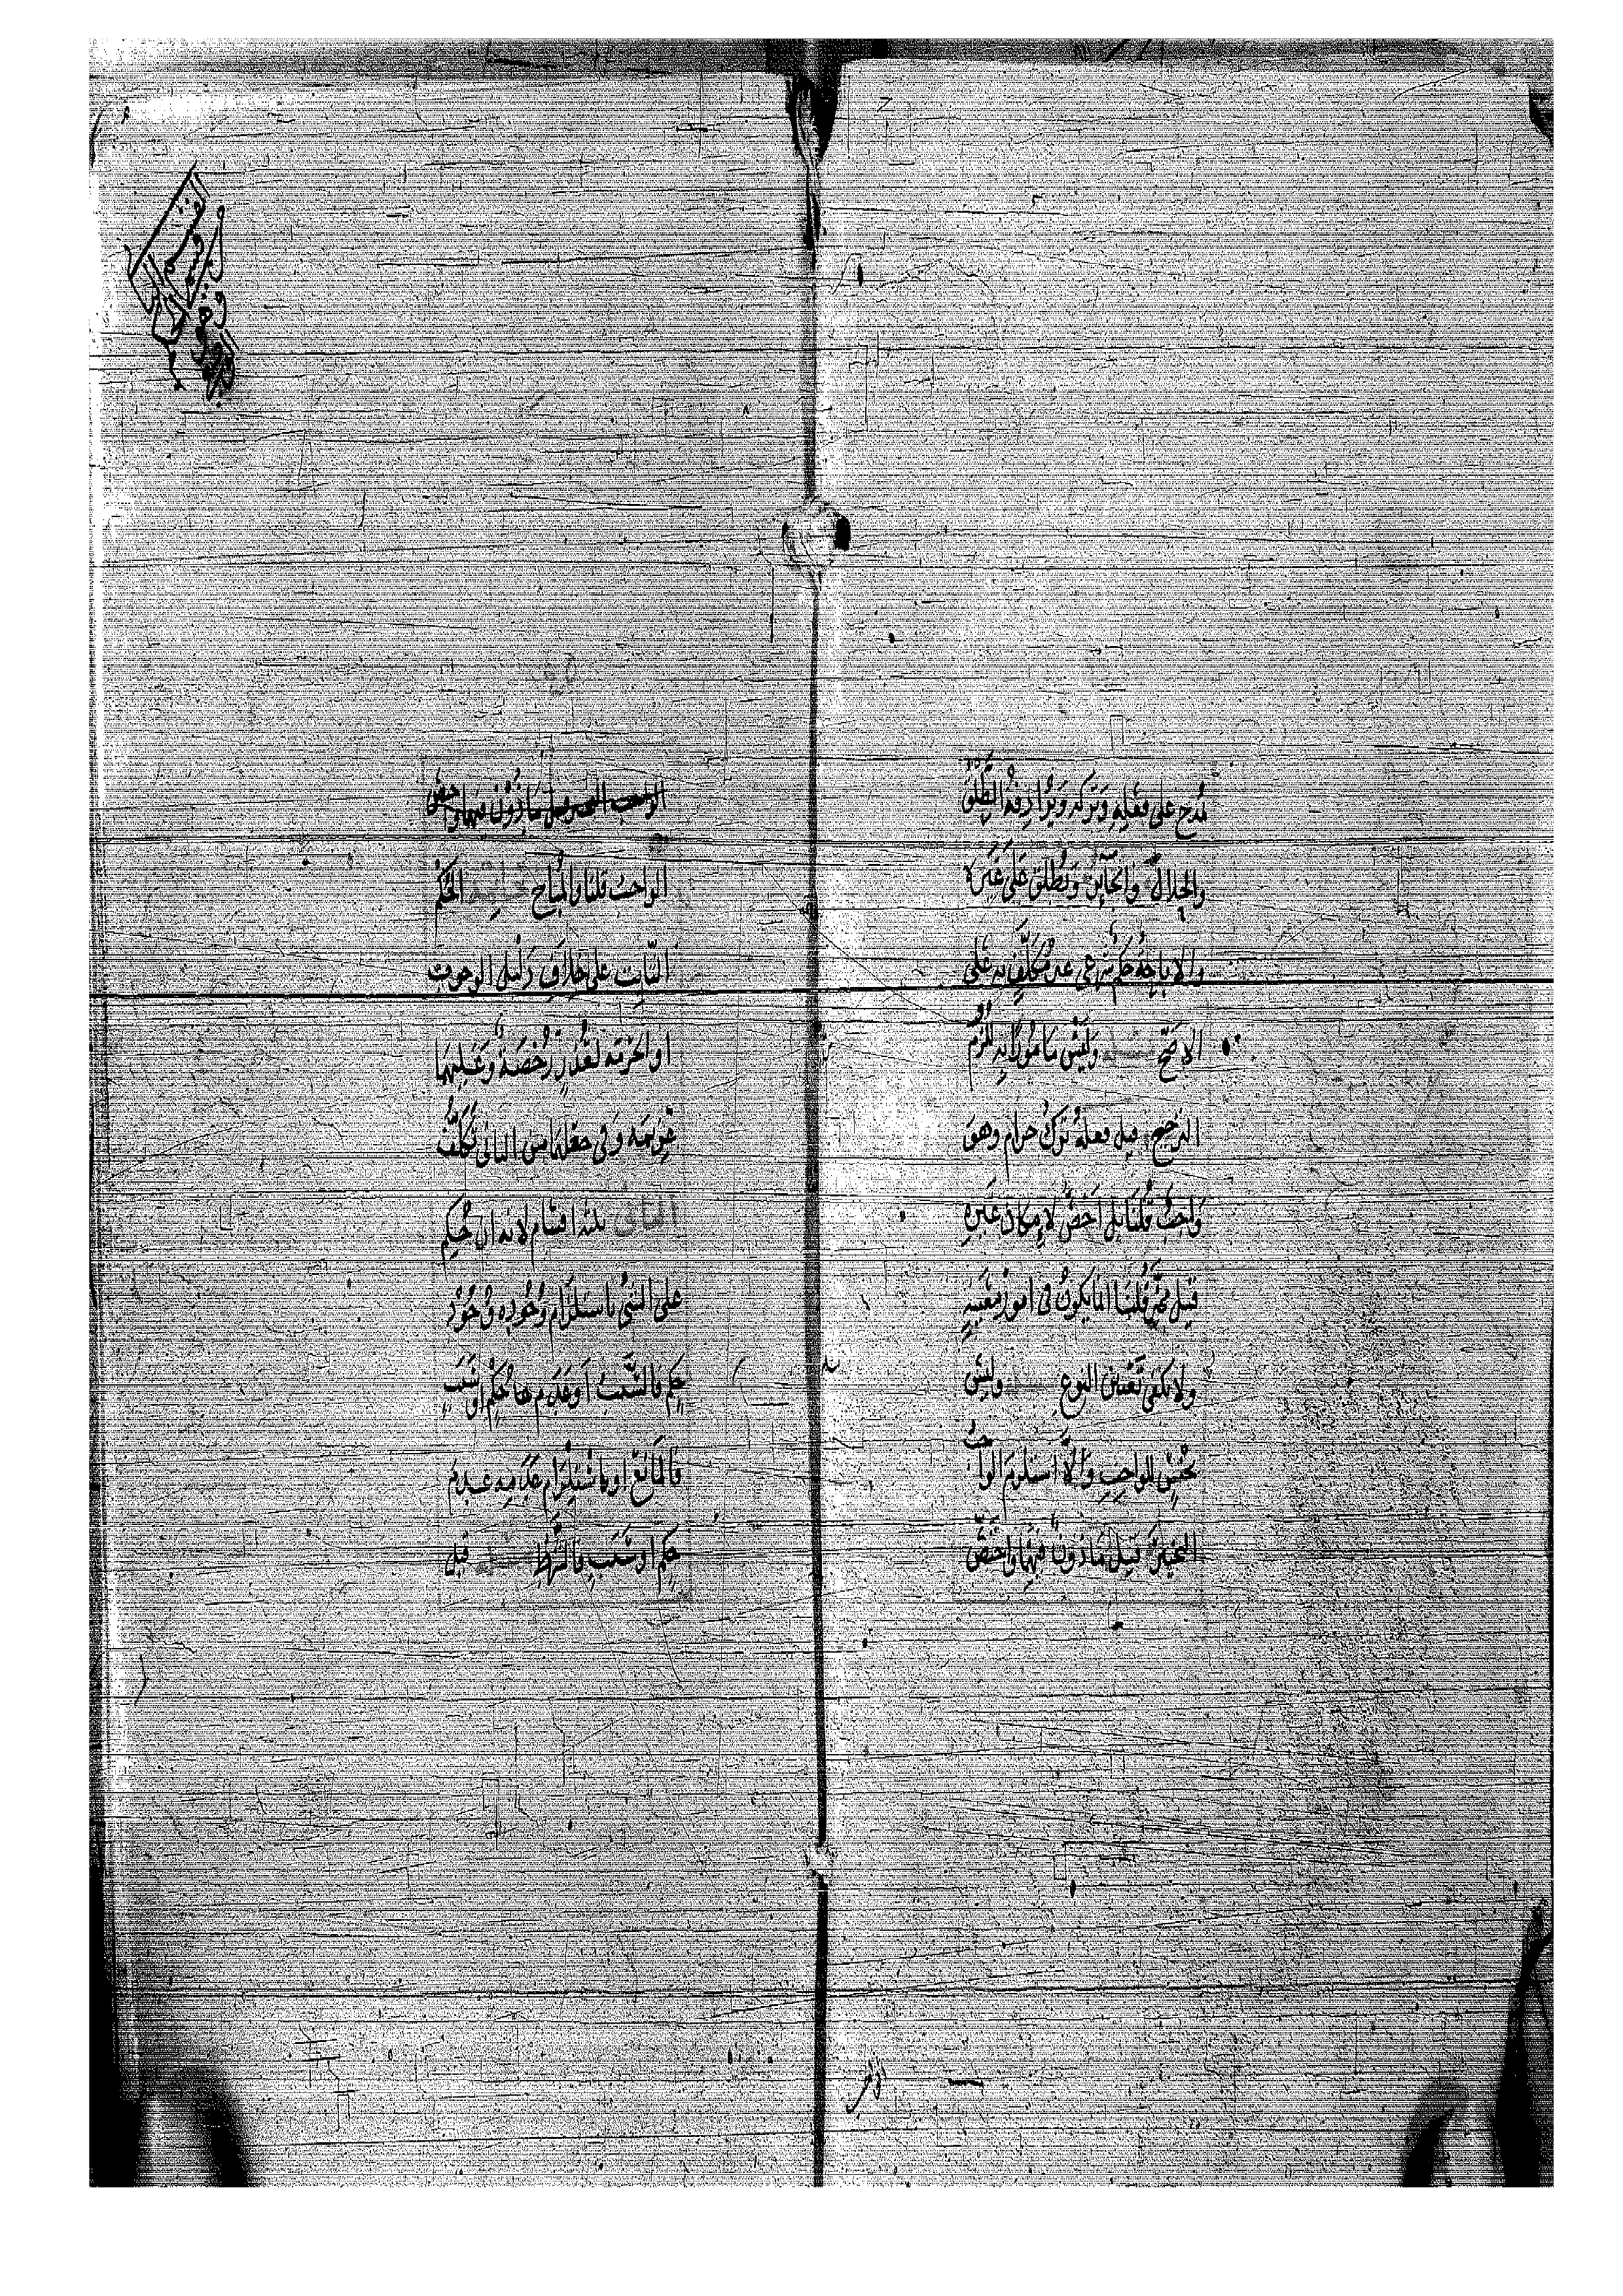 مدح على فعله وتركه ويرادفه الطلق
والحلال والجائز وتطلق على غير لا
والاباحة حكم شرعي غير مكلف به على
الاصح وليس مامورا به للزم
الترجيح قيل فعله ترك حرام وهو
واجب قلنا بل اخص لامكان غيره
قيل مخير قلنا انما يكون في امور معينة
ولا يكفي تعيين النوع وليس
بجنس للواجب والا استلزم الواجب
التخيير قيل ماذون فيهما واختص
الواجب ماذون فيهما واختص
الواجب قلنا والمباح الحكم
الثابت على خلاف دليل الوجوب
او الحرمة لعذر رخصة وغيرها
عزيمة وفي جعلهما من الثاني تكلف
الثاني ثلثة اقسام لانه ان حكم
على الشي باستلزام وجوده وجود
حكم فالسبب او عدمهما حكم او سبب
فالمانع او باستلزام عدمه عدم
حكم او سبب فالشرط قيل
الواجب